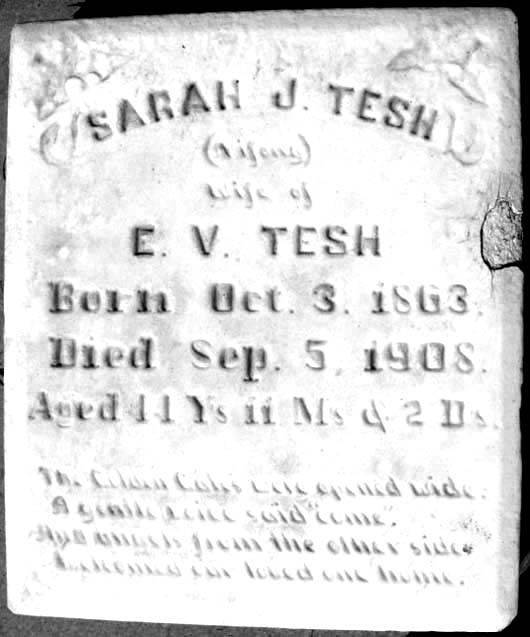 SARAH J. TESH
(Nifong)
Wife of
E. V. TESH
Born Oct. 3. 1863.
Died Sep. 5, 1908.
Aged 44 Ys 11 Ms & 2 Ds.
The Golden Gates were opened wide.
A gentle voice said "come".
And angels from the other side
Welcomed our loved one home.